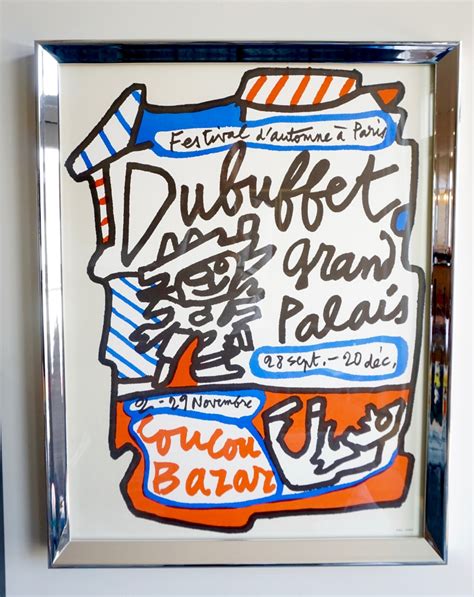 Festival d'automne à Paris
Dubuffet,
grand
Palais
28 sept. - 20 déc.
- 29 Novembre
Coucou
Bazar